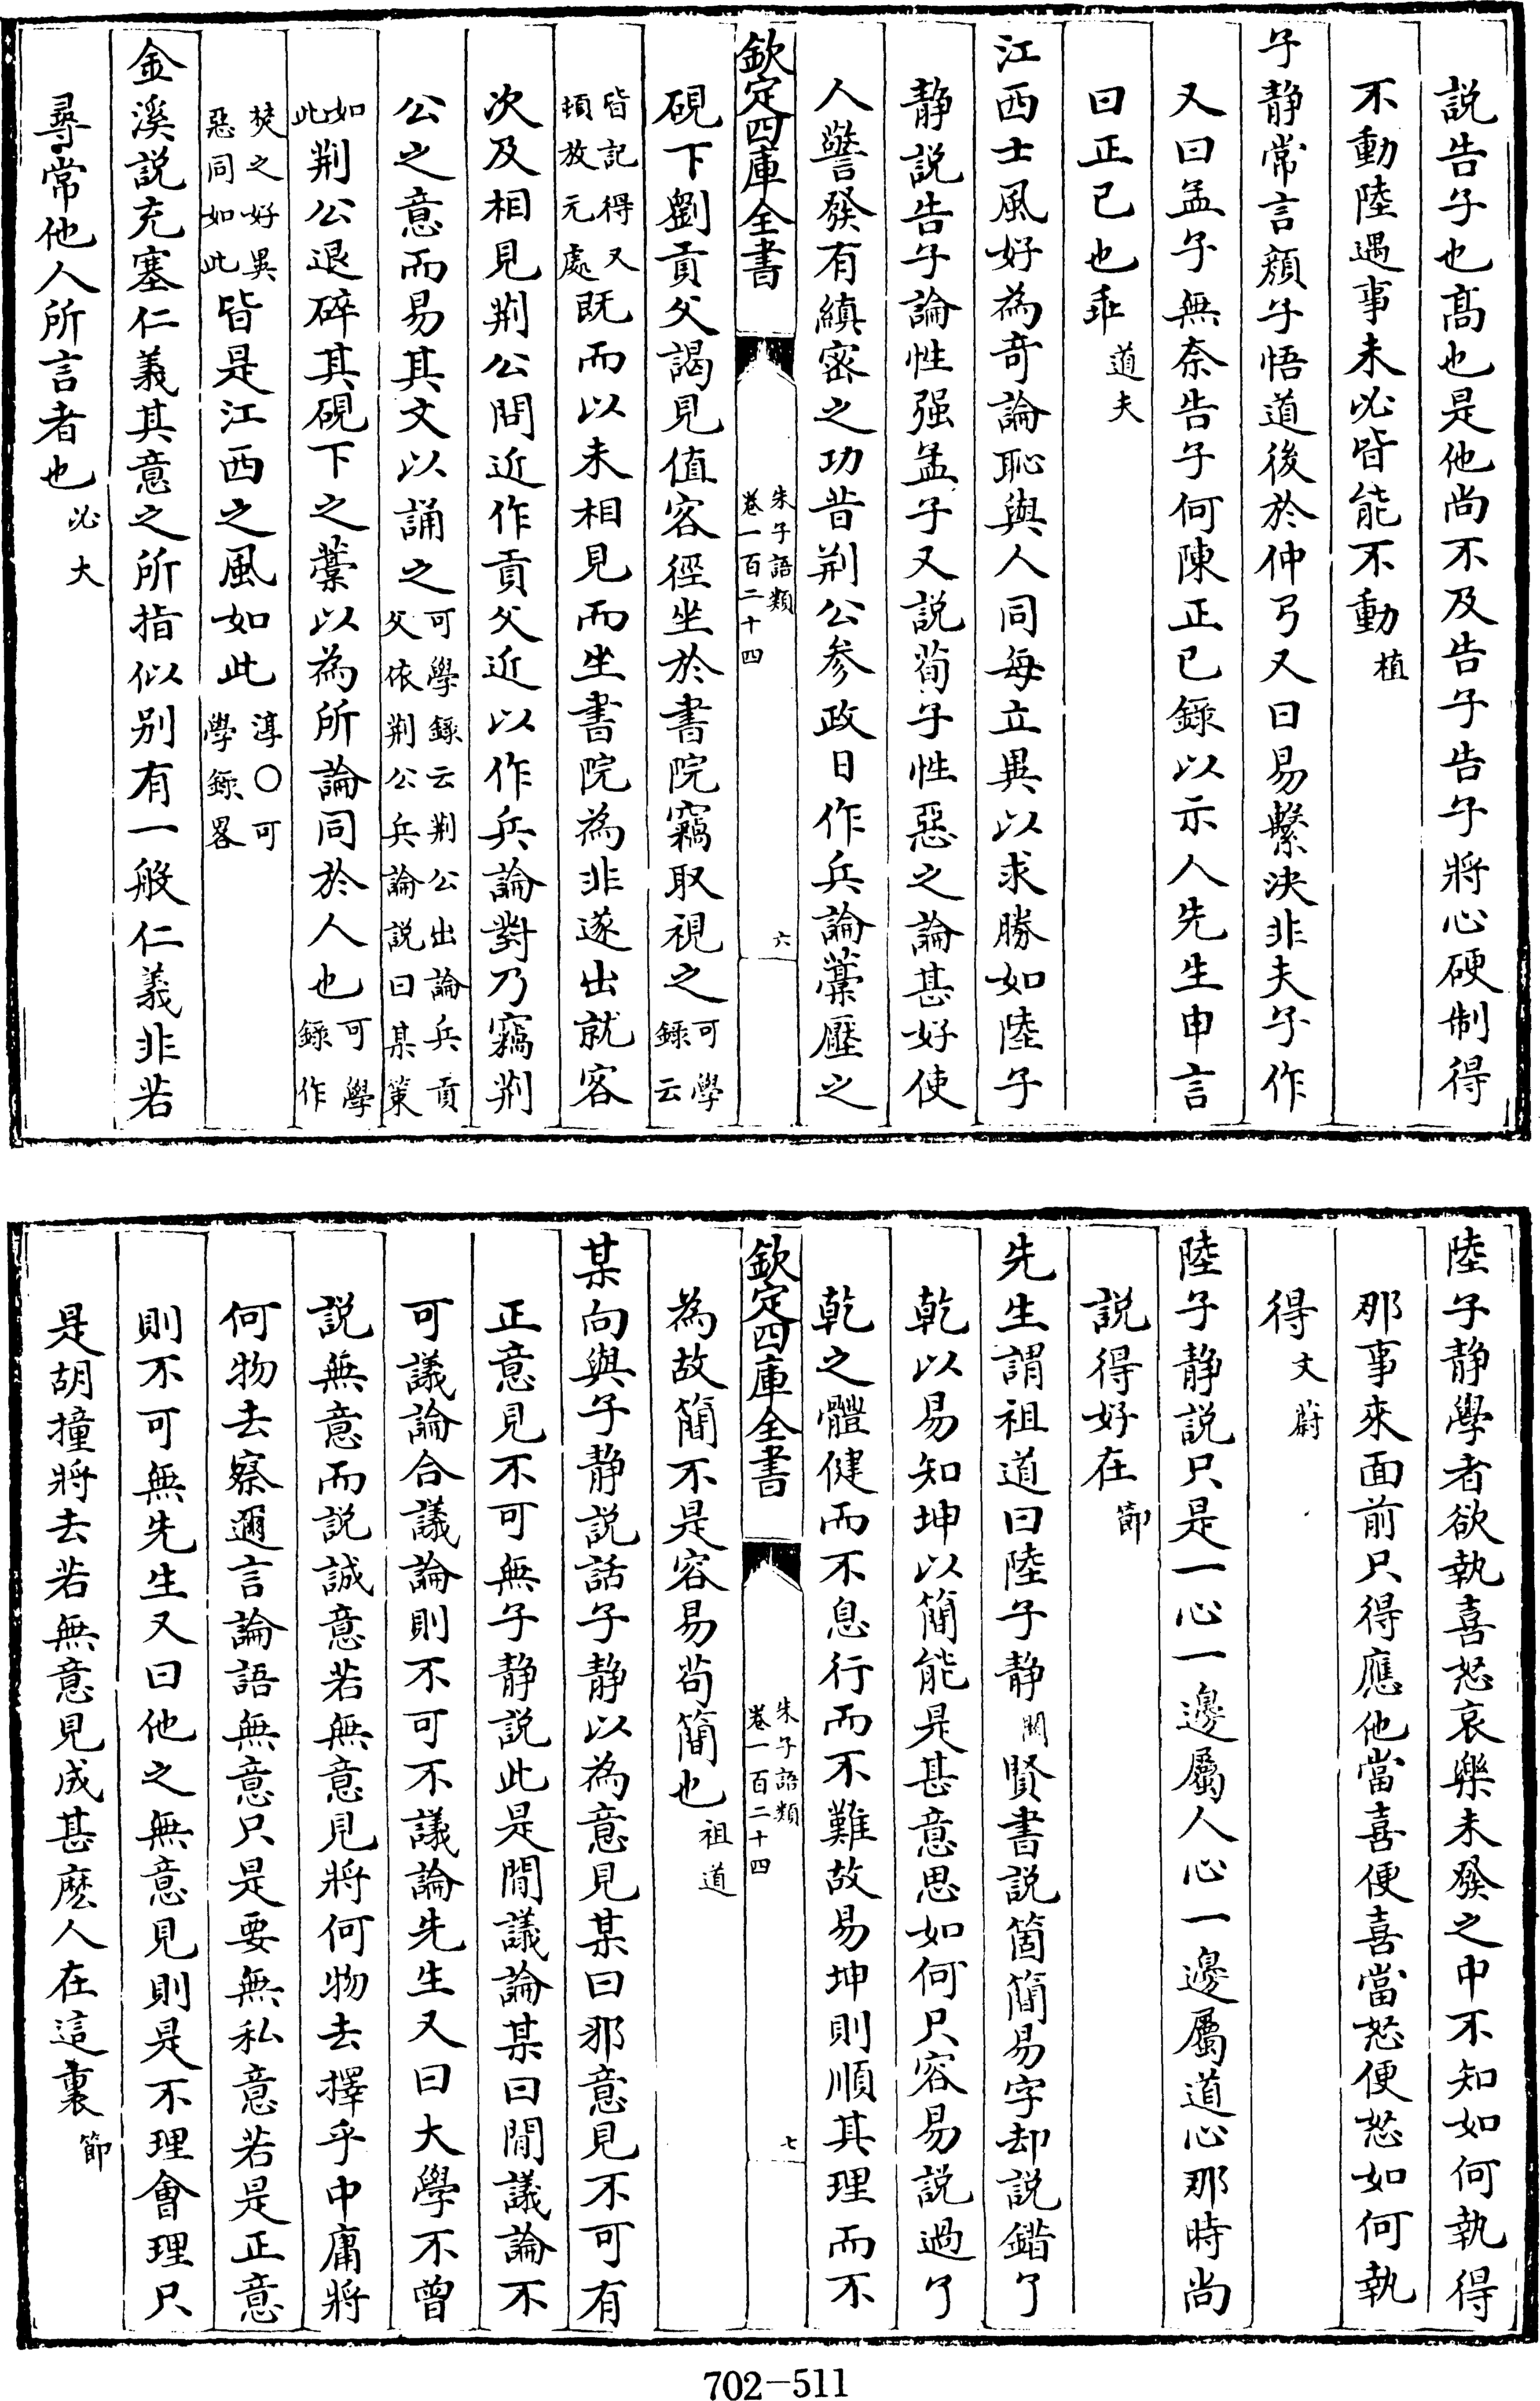 說告子也髙也是他尚不及告子告子將心硬制得
不動陸遇事未必皆能不動植
子靜常言顏子悟道後於仲弓又曰易繫決非夫子作
又曰孟子無奈告子何陳正已錄以示人先生申言
曰正已也乖道夫
江西士風好為竒論恥與人同每立異以求勝如陸子
靜說告子論性强孟子又說荀子性惡之論甚好使
人警發有縝宻之功昔荆公參政日作兵論藁壓之
欽定四庫全書
朱子語類
卷一百二十四
六
硯下劉貢父謁見值客徑坐於書院竊取視之可學
錄云
皆記得又
頓放元處既而以未相見而坐書院為非遂出就客
次及相見荆公問近作貢父近以作兵論對乃竊荆
公之意而易其文以誦之可學錄云荆公出論兵貢
父依荆公兵論説曰某策
如
此荆公退碎其硯下之藁以為所論同於人也可學
錄作
焚之好異
惡同如此皆是江西之風如此淳○可
學錄畧
金溪説充塞仁義其意之所指似别有一般仁義非若
尋常他人所言者也必大
陸子静學者欲執喜怒哀樂未發之中不知如何執得
那事來面前只得應他當喜便喜當怒便怒如何執
得文蔚
陸子静説只是一心一邊屬人心一邊屬道心那時尚
説得好在節
先生謂祖道曰陸子静闗賢書説箇簡易字却説錯了
乾以易知坤以簡能是甚意思如何只容易説過了
乾之體健而不息行而不難故易坤則順其理而不
欽定四庫全書
朱子語類
卷一百二十四
七
為故簡不是容易茍簡也祖道
某向與子静説話子静以為意見某曰邪意見不可有
正意見不可無子静説此是閒議論某曰閒議論不
可議論合議論則不可不議論先生又曰大學不曾
説無意而説誠意若無意見將何物去擇乎中庸將
何物去察邇言論語無意只是要無私意若是正意
則不可無先生又曰他之無意見則是不理會理只
是胡撞將去若無意見成甚麽人在這裏節
702-511